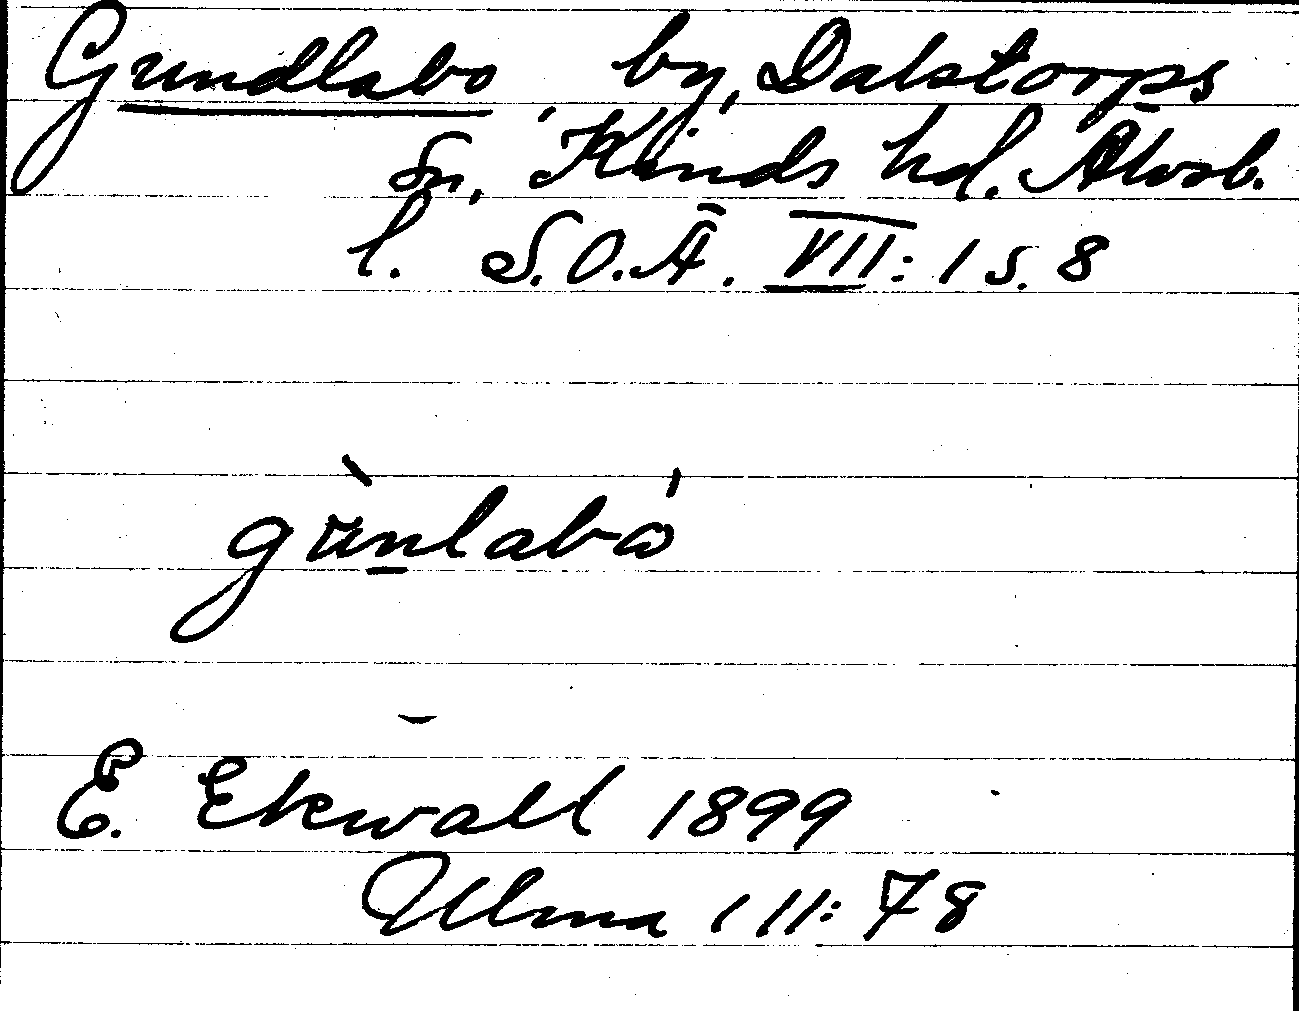 Grundlabo, by, Dalstorps
sn, Kinds hd. Älvsb.
l. S.O.Ä. VII: 1 s. 8
E. Ekwall 1899
Ulma 111: 78